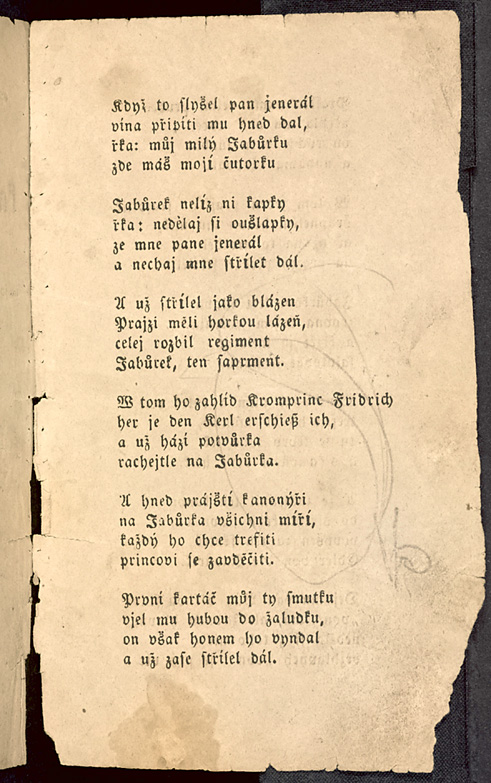 Když to slyšel pan jenerál
vína připíti mu hned dal,
řka: můj milý Jabůrku
zde máš mojí čutorku
Jabůrek nelíz ni kapky
řka: nedělaj si oušlapky,
ze mne pane jenerál
a nechaj mne střílet dál.
A už střílel jako blázen
Prajzi měli horkou lázeň,
celej rozbil regiment
Jabůrek, ten saprment.
W tom ho zahlíd Kromprinc Fridrich
her je den Kerl erschieß ich,
a už hází potvůrka
rachejtle na Jabůrka.
A hned prájští kanonýři
na Jabůrka všichni míří,
každý ho chce trefiti
princovi se zavděčiti.
První kartáč můj ty smutku
vjel mu hubou do žaludku,
on však honem ho vyndal
a už zase střílel dál.